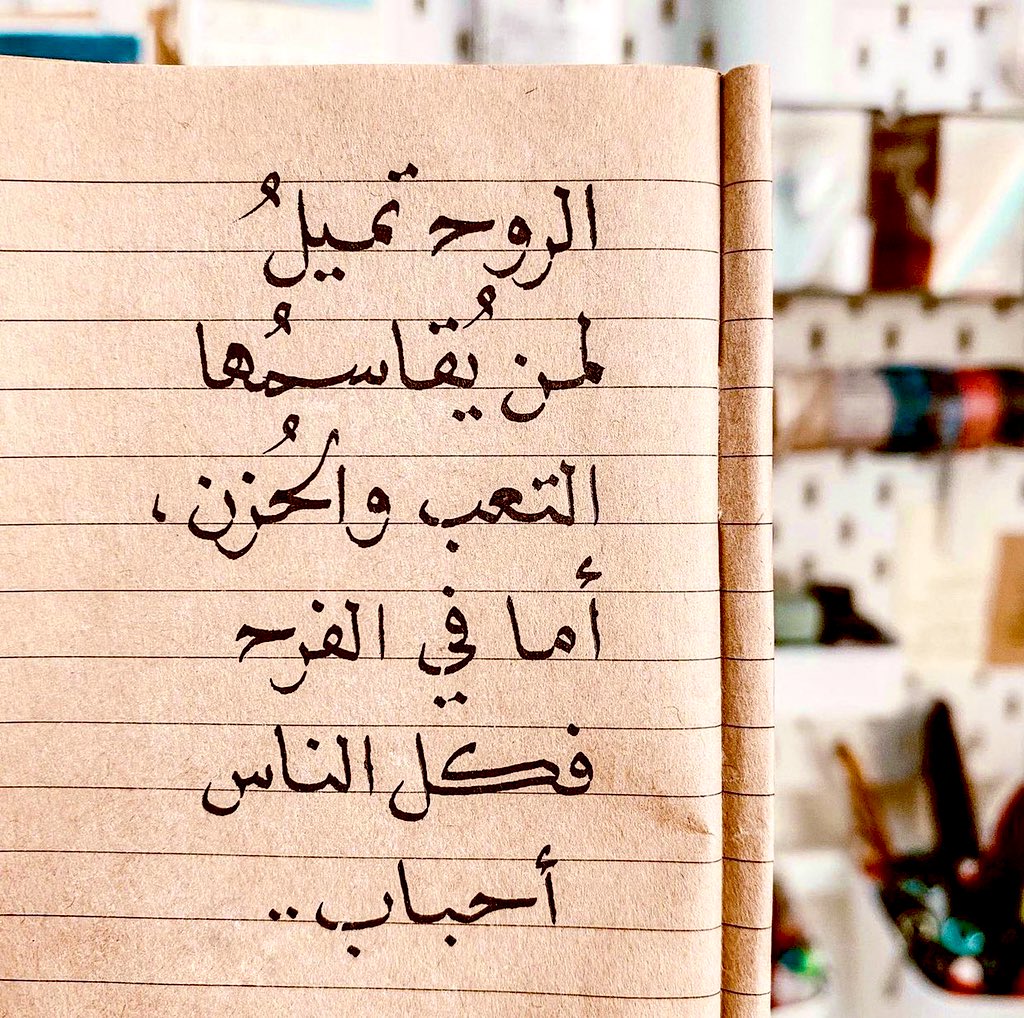 الروح تميلُ
لمن يُقاسمُها
التعب والحُزن،
أما في الفرح
فكل الناس
أحباب..